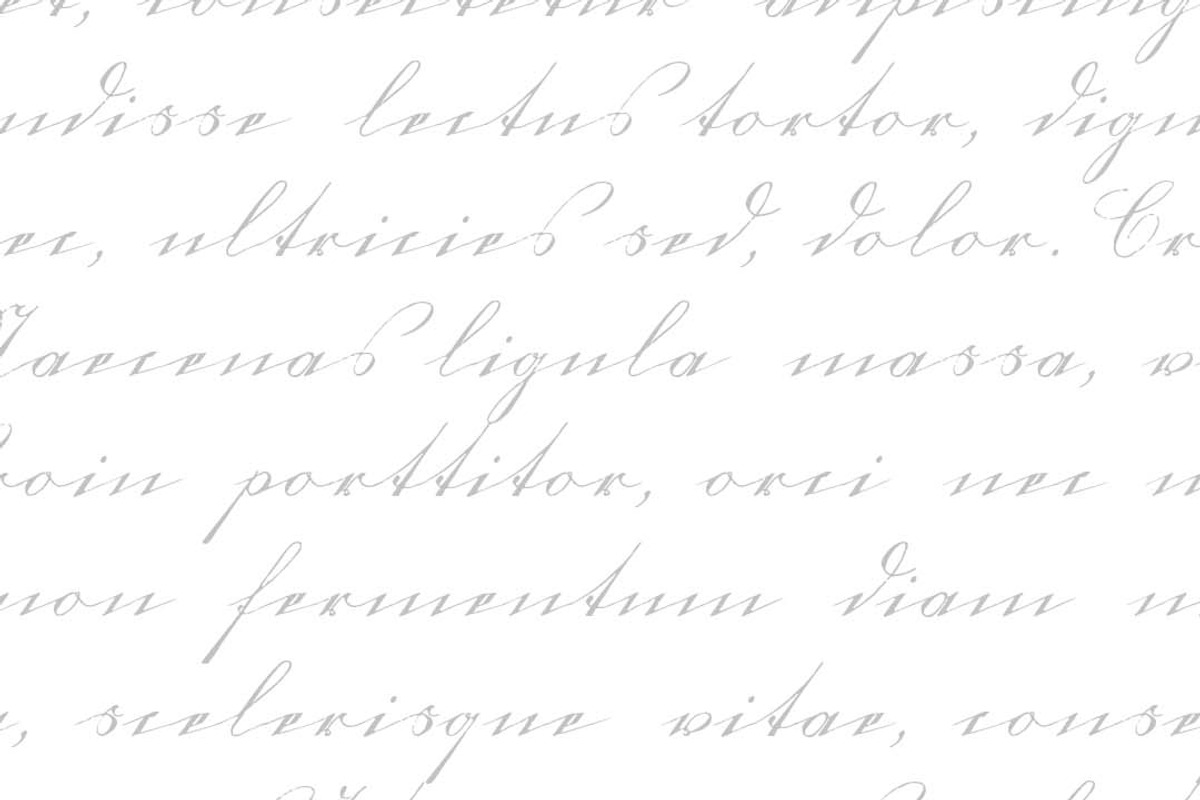 et, consectetur adipiscing
ndisse lectus tortor, dign
ec, ultricies sed, dolor. Cr
Maecenas ligula massa, v
roin porttitor, orci nec n
non fermentum diam n
, scelerisque vitae, conse